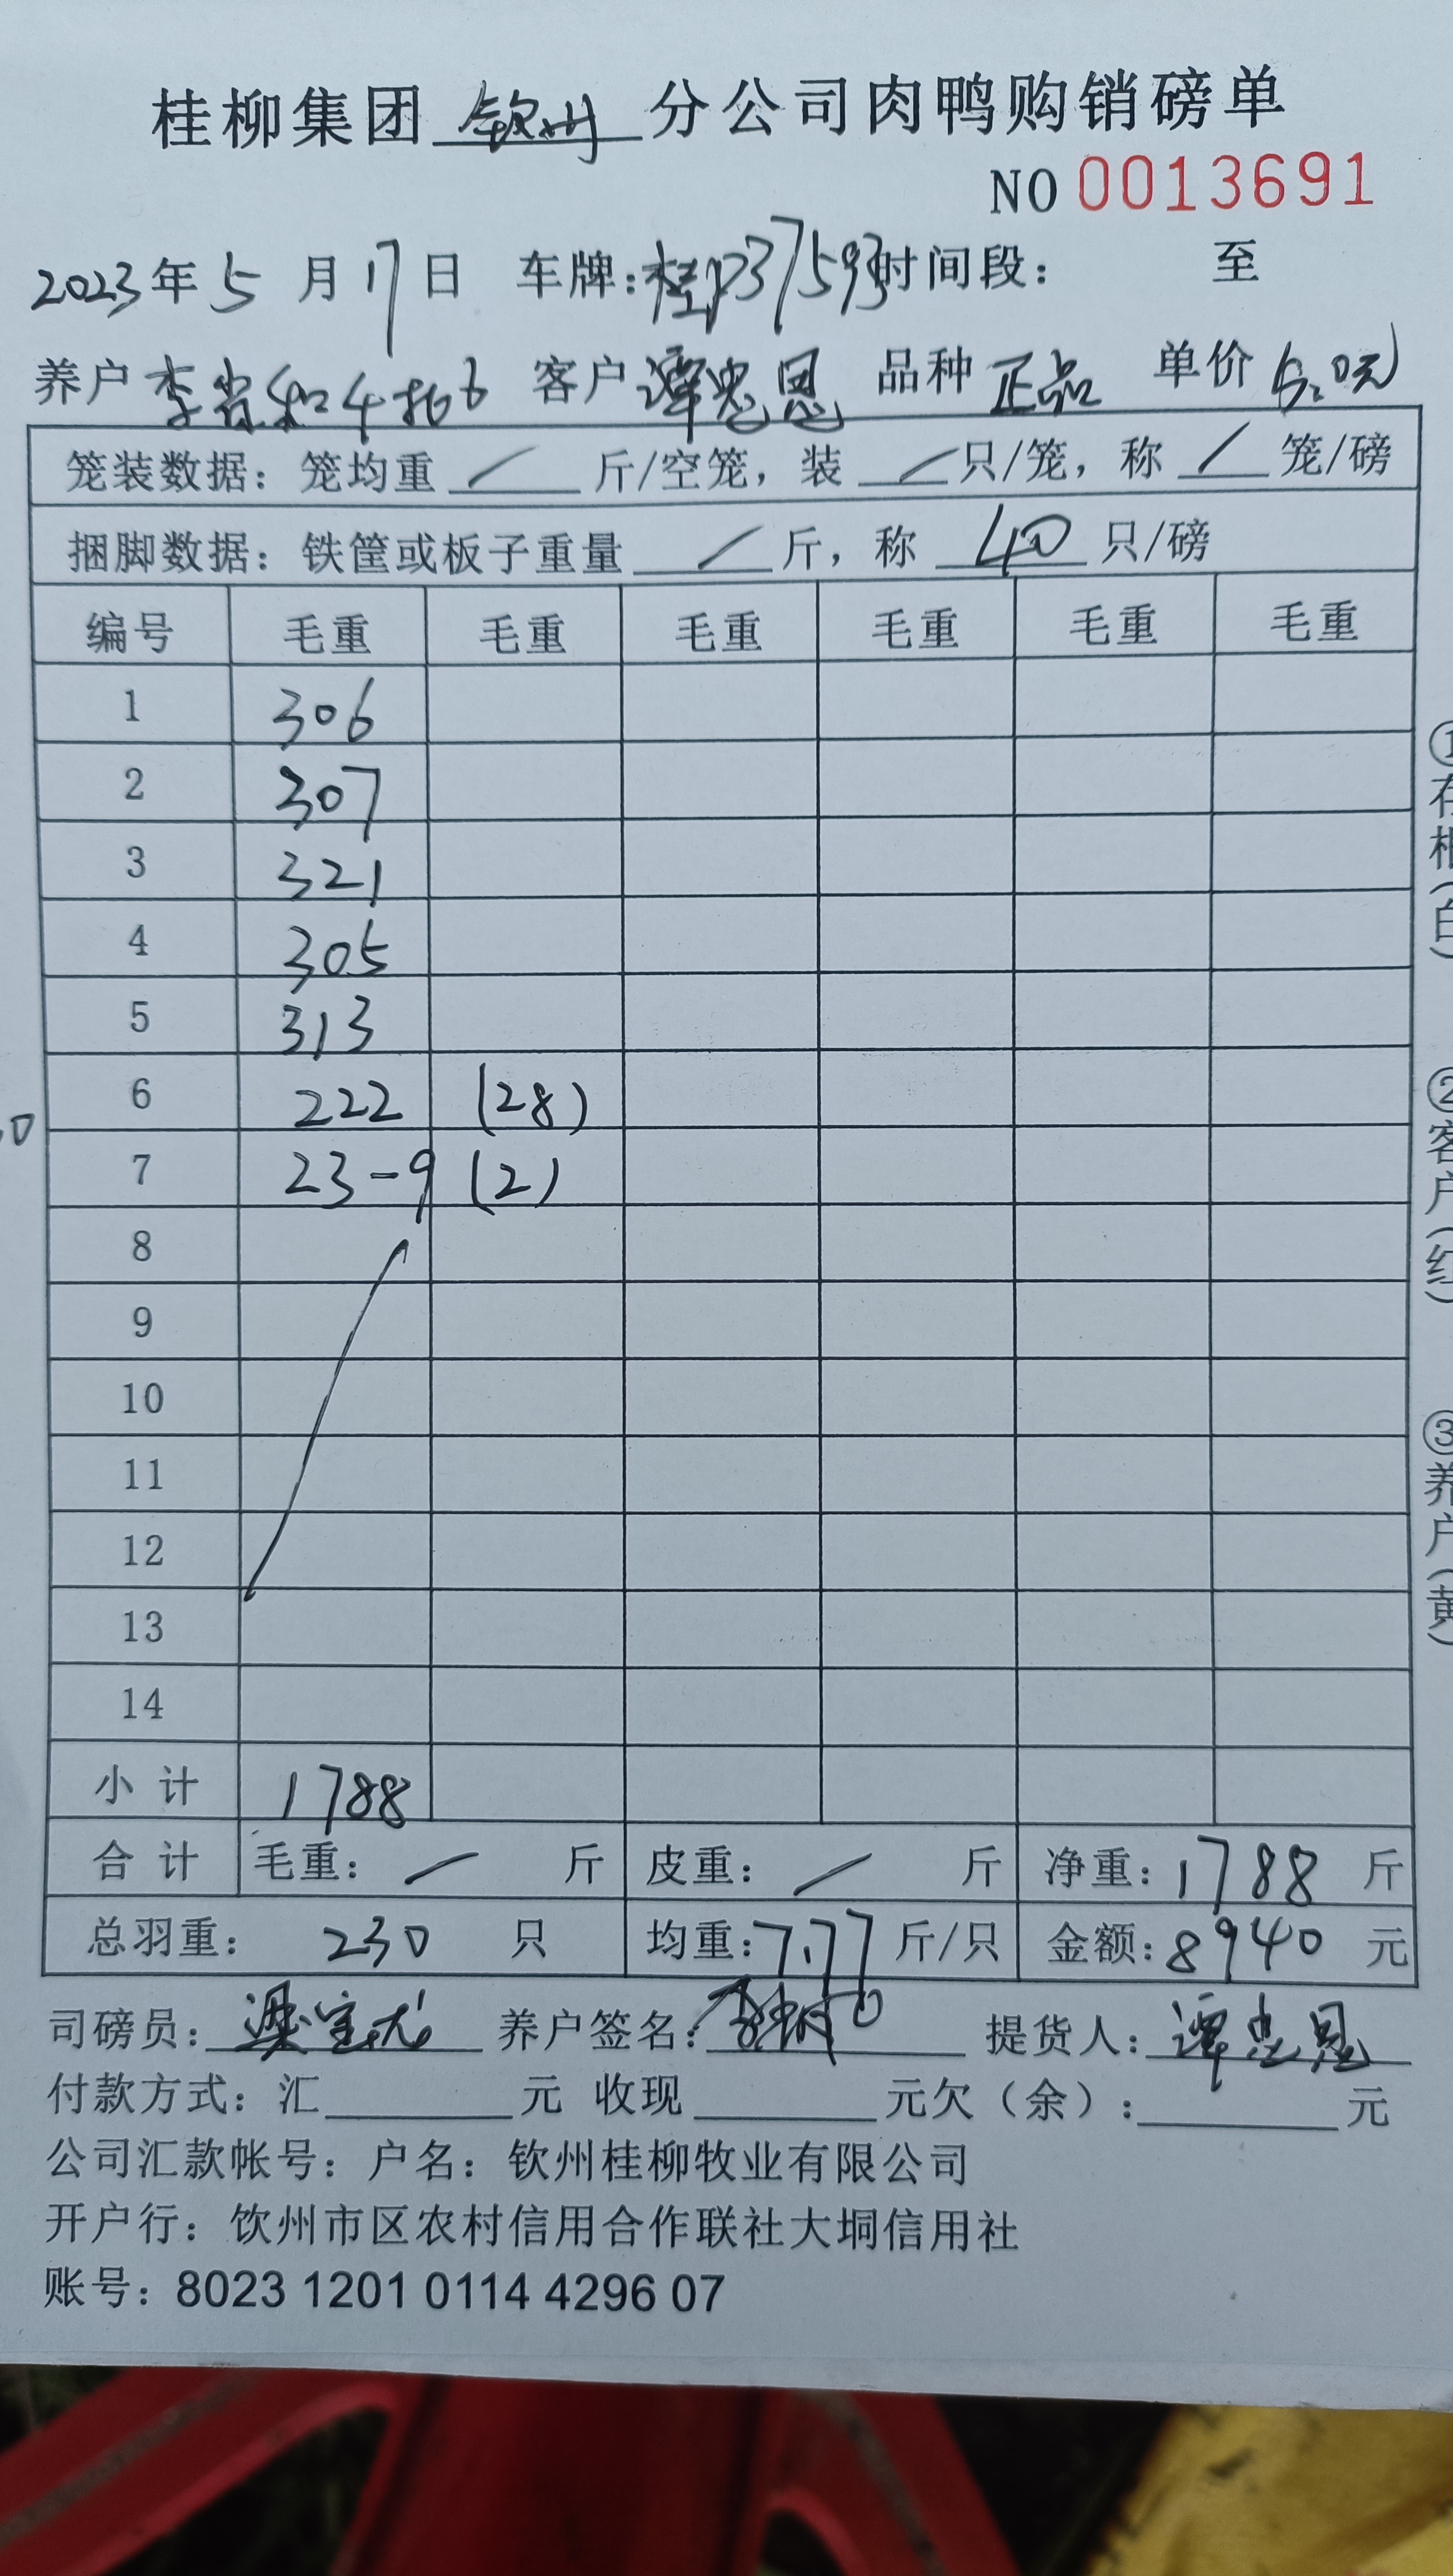 桂柳集团 钦州 分公司肉鸭购销磅单
NO 0013691
2023年5月17日 车牌:桂P37593 时间段: 至
养户 李 和4批6 客户 谭忠恩 品种 正品 单价 5.0元
笼装数据: 笼均重 / 斤/空笼, 装 / 只/笼, 称 / 笼/磅
捆脚数据: 铁筐或板子重量 / 斤, 称 40 只/磅
编号 毛重 毛重 毛重 毛重 毛重 毛重
1 306
2 307
3 321
4 305
5 313
6 222 (28)
7 23-9 (2)
8
9
10
11
12
13
14
小计 1788
合计 毛重: / 斤 皮重: / 斤 净重: 1788 斤
总羽重: 230 只 均重: 7.77 斤/只 金额: 8940 元
司磅员: 梁宝龙 养户签名: 提货人: 谭忠恩
付款方式: 汇 元 收现 元欠(余): 元
公司汇款帐号: 户名: 钦州桂柳牧业有限公司
开户行: 钦州市区农村信用合作联社大垌信用社
账号: 8023 1201 0114 4296 07
①存根(白)
②客户(红)
③养户(黄)